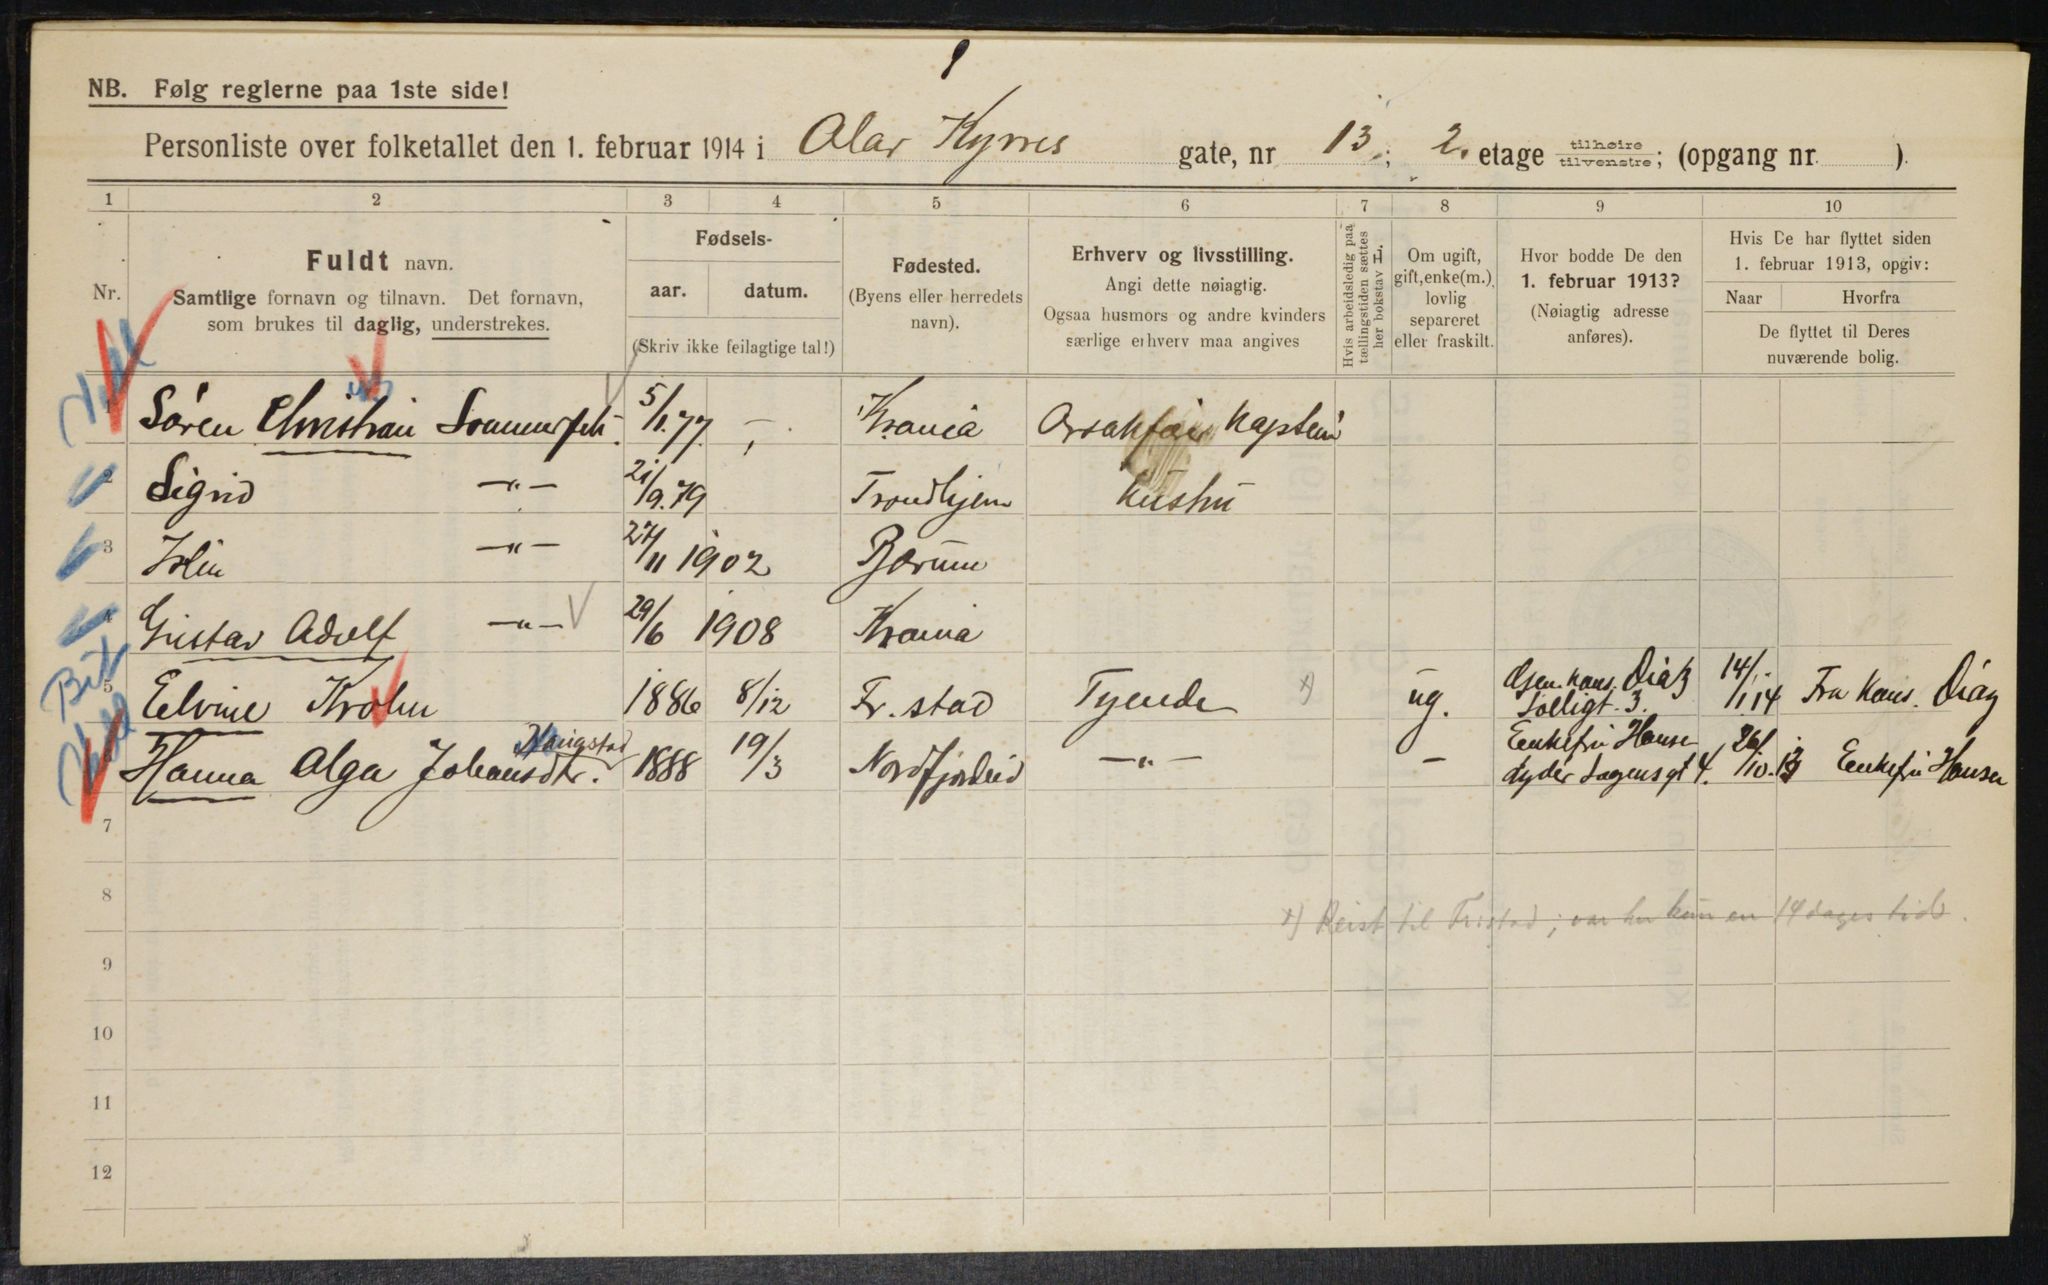 NB. Følg reglerne paa 1ste side!
Personliste over folketallet den 1. februar 1914 i Olav Kyrres gate, nr 13; 2. etage tilhøire tilvenstre; (opgang nr ).
1 2 3 4 5 6 7 8 9 10
Nr.
Fuldt navn.
Samtlige fornavn og tilnavn. Det fornavn,
som brukes til daglig, understrekes.
Fødsels-
aar. datum.
(Skriv ikke feilagtige tal!)
Fødested.
(Byens eller herredets
navn).
Erhverv og livsstilling.
Angi dette nøiagtig.
Ogsaa husmors og andre kvinders
særlige erhverv maa angives
Hvis arbeidsledig paa
tællingstiden sættes
her bokstav L.
Om ugift,
gift, enke(m.)
lovlig
separeret
eller fraskilt.
Hvor bodde De den
1. februar 1913?
(Nøiagtig adresse
anføres).
Hvis De har flyttet siden
1. februar 1913, opgiv:
Naar Hvorfra
De flyttet til Deres
nuværende bolig.
1 Sören Christian 5/1.77 Krania Kaptein
2 Sigrid —"— 21/9.79 Trondhjem hustru
3 —"— 27/11 1902 Bærum
4 Gustav Adolf —"— 29/6 1908 Krania
5 Elvine Krohn 1886 8/12 Fr.stad Tyende x) ug. Gen. kons. Diaz 14/1.14 Fra Kons. Diaz
Solligt. 3.
Haugstad Enkefru Hansen
6 Hanna Olga Johansdtr. 1888 19/3 Nordfjordeid —"— — Lyder Sagensgt 4. 26/10.13 Enkefru Hansen
7
8
x) Reist til Fr.stad; var her kun en 14 dages tid.
9
10
11
12